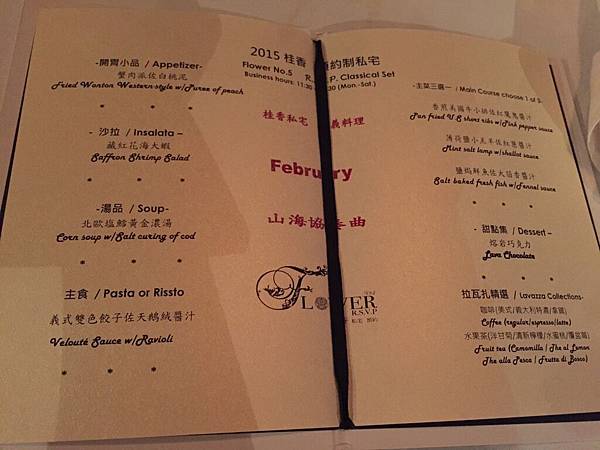 -開胃小品 / Appetizer-
蟹肉派佐白桃泥
Fried Wonton Western-style w/Puree of peach
* * *
- 沙拉 / Insalata –
藏紅花海大蝦
Saffron Shrimp Salad
* * *
-湯品 / Soup-
北歐塩鱈黃金濃湯
Corn soup w/Salt curing of cod
* * *
主食 / Pasta or Rissto
義式雙色餃子佐天鵝絨醬汁
Velouté Sauce w/Ravioli
* * *
2015 桂香 約制私宅
Flower No.5 R. .P. Classical Set
Business hours: 11:30 :30 (Mon.-Sat.)
桂香私宅 義料理
February
山海協奏曲
FLOWER
R.S.V.P
-主菜三選一 / Main Course choose 1 of 3-
香煎美國牛小排佐紅萬鬼醬汁
Pan fried U.S short ribs w/Pink pepper sauce
薄荷鹽小羔羊佐紅蔥醬汁
Mint salt lamp w/shallot sauce
鹽焗鮮魚佐大茴香醬汁
Salt baked fresh fish w/Fennel sauce
* * *
- 甜點集 / Dessert –
熔岩巧克力
Lava Chocolate
* * *
拉瓦扎精選 / Lavazza Collections-
咖啡(美式/義大利特濃/拿鐵)
Coffee (regular/espresso/latte)
水果茶(洋甘菊/清新檸檬/水蜜桃/覆盆莓)
Fruit tea (Camomilla / The al Lemon
The alla Pesca / Frutta di Bosco)